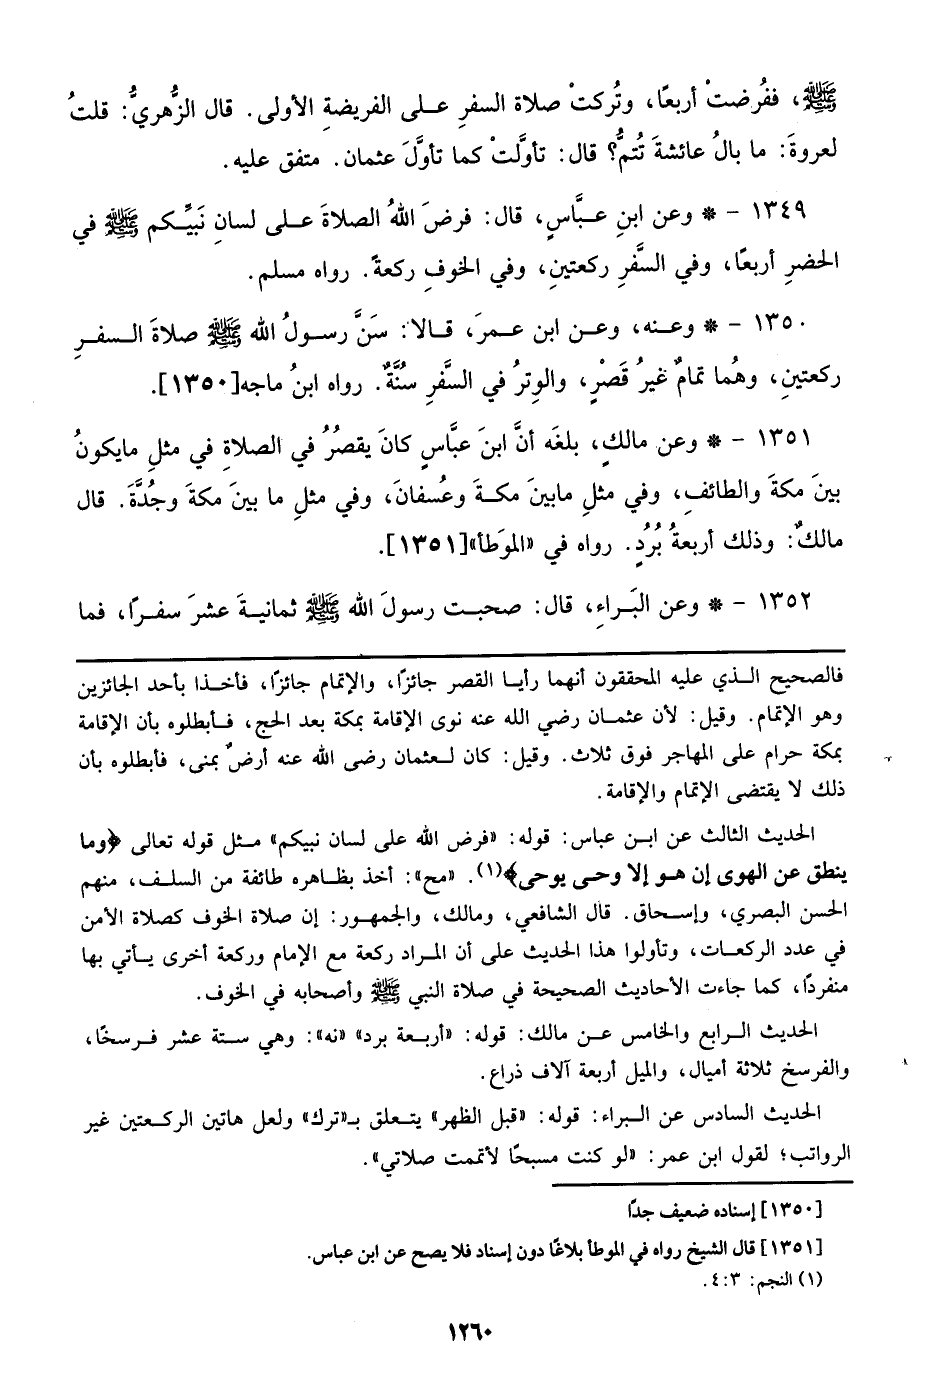 ﷺ، ففُرضتْ أربعًا، وتُركتْ صلاة السفرِ على الفريضةِ الأولى. قال الزُّهريُّ: قلتُ
لعروةَ: ما بالُ عائشةَ تُتمُّ؟ قال: تأوَّلتْ كما تأوَّلَ عثمان. متفق عليه.
١٣٤٩ - * وعن ابنِ عبَّاسٍ، قال: فرضَ اللهُ الصلاةَ على لسانِ نَبيِّكم ﷺ في
الحضرِ أربعًا، وفي السَّفرِ ركعتينِ، وفي الخوفِ ركعةً. رواه مسلم.
١٣٥٠ - * وعنه، وعن ابن عمرَ، قالا: سَنَّ رسولُ الله ﷺ صلاةَ السفرِ
ركعتينِ، وهُما تمامٌ غيرُ قصْرٍ، والوِترُ في السَّفرِ سُنَّةٌ. رواه ابنُ ماجه[١٣٥٠].
١٣٥١ - * وعن مالكٍ، بلغَه أنَّ ابنَ عبَّاسٍ كانَ يقصُرُ في الصلاةِ في مثلِ مايكونُ
بينَ مكةَ والطائفِ، وفي مثلِ مابينَ مكةَ وعُسفانَ، وفي مثلِ ما بينَ مكةَ وجُدَّةَ. قال
مالكٌ: وذلك أربعةُ بُرُدٍ. رواه في «الموَطأ»[١٣٥١].
١٣٥٢ - * وعن البَراءِ، قال: صحبت رسولَ الله ﷺ ثمانيةَ عشرَ سفرًا، فما
فالصحيح الذي عليه المحققون أنهما رأيا القصر جائزًا، والإتمام جائزًا، فأخذا بأحد الجائزين
وهو الإتمام. وقيل: لأن عثمان رضي الله عنه نوى الإقامة بمكة بعد الحج، فأبطلوه بأن الإقامة
بمكة حرام على المهاجر فوق ثلاث. وقيل: كان لعثمان رضى الله عنه أرضٌ بمنى، فأبطلوه بأن
ذلك لا يقتضى الإتمام والإقامة.
الحديث الثالث عن ابن عباس: قوله: «فرض الله على لسان نبيكم» مثل قوله تعالى ﴿وما
ينطق عن الهوى إن هو إلا وحى يوحى﴾(١). «مح»: أخذ بظاهره طائفة من السلف، منهم
الحسن البصري، وإسحاق. قال الشافعي، ومالك، والجمهور: إن صلاة الخوف كصلاة الأمن
في عدد الركعات، وتأولوا هذا الحديث على أن المراد ركعة مع الإمام وركعة أخرى يأتي بها
منفردًا، كما جاءت الأحاديث الصحيحة في صلاة النبي ﷺ وأصحابه في الخوف.
الحديث الرابع والخامس عن مالك: قوله: «أربعة برد» «نه»: وهي ستة عشر فرسخًا،
والفرسخ ثلاثة أميال، والميل أربعة آلاف ذراع.
الحديث السادس عن البراء: قوله: «قبل الظهر» يتعلق بـ«ترك» ولعل هاتين الركعتين غير
الرواتب؛ لقول ابن عمر: «لو كنت مسبحًا لأتممت صلاتي».
[١٣٥٠] إسناده ضعيف جدًا
[١٣٥١] قال الشيخ رواه في الموطأ بلاغًا دون إسناد فلا يصح عن ابن عباس.
(١) النجم: ٤:٣.
١٢٦٠